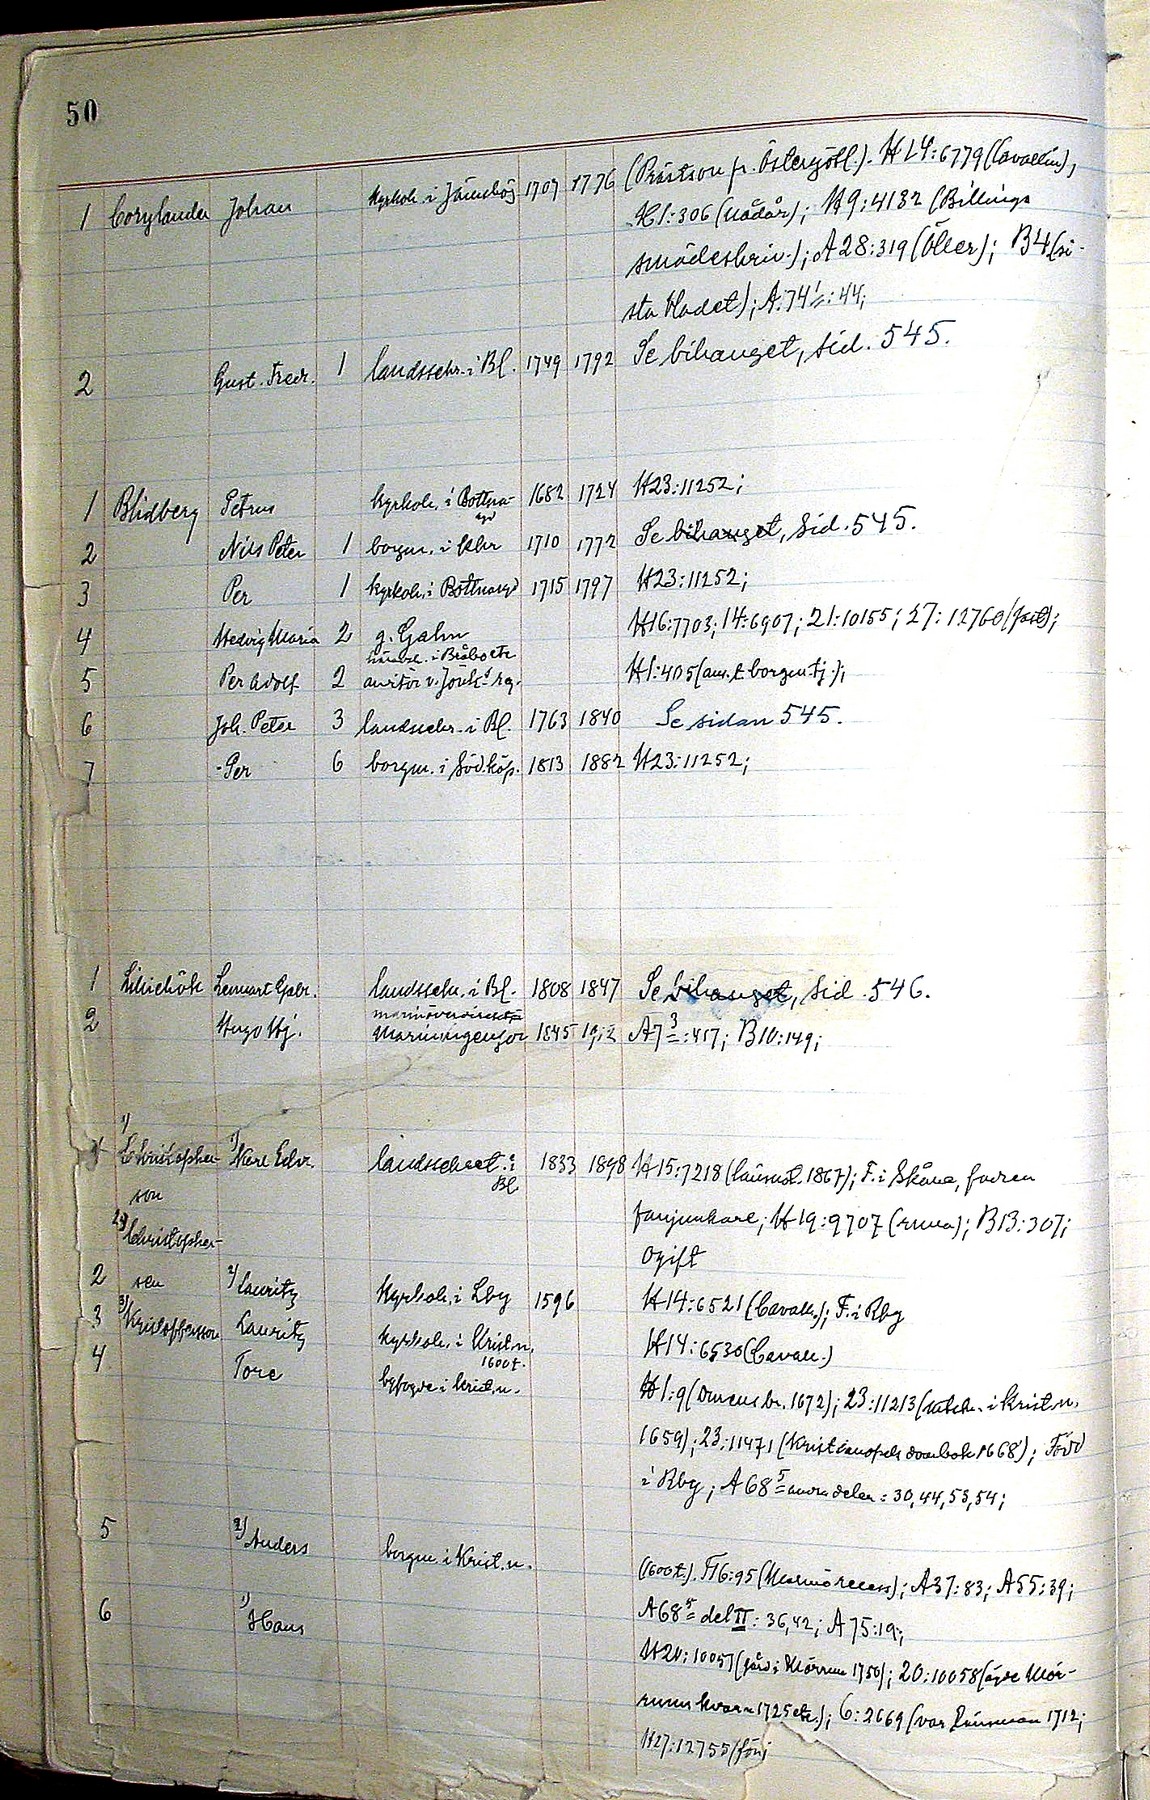 50
1 Corylander Johan kyrkoh. i Jämshög 1707 1776 (Prästson fr. Östergötl.). H 14:6779 (Cavallin),
H1:306 (nådår); H9:4132 (Billings
smädeskriv.); A28:319 (Öller); B4 (si-
sta bladet); A.74:44;
2 Gust. Fredr. 1 landssekr. i Bl. 1749 1792 Se bihanget, sid. 545.
1 Blidberg Petrus kyrkoh. i Bottna-
ryd 1682 1724 H23:11252;
2 Nils Peter 1 borgm. i Khr 1710 1772 Se bihanget, sid. 545.
3 Per 1 kyrkoh. i Bottnaryd 1715 1797 H23:11252;
4 Hedvig Maria 2 g. Gahn H16:7703; 14:6907; 21:10155; 27:12760
häradsh. i Bräkne etc
5 Per Adolf 2 auditör v. Jönk. rg. H1:405 (ans. t. borgm.tj.);
6 Joh. Peter 3 landssekr. i Bl. 1763 1840 Se sidan 545.
7 Per 6 borgm. i Söd.köp. 1813 1882 H23:11252;
1 Liliehöök Lennart Gabr. landssekr. i Bl. 1808 1847 Se bihanget, sid. 546.
marinöverdirektör
2 Hugo Hj. Mariningenjör 1845 A7 3:417; B10:149;
1 1) Christopher-
son 1) Karl Edv. landssekret. i
Bl. 1833 1898 H15:7218 (länsnot. 1867); F. i Skåne, fadren
fanjunkare; H19:9707 (runa); B13:307;
ogift
2 2) Christopher-
sen 2) Lauritz kyrkoh. i Lby 1596 H14:6521 (Cavall.); F. i Rby
3 3) Kristoffersson Lauritz kyrkoh. i Krist.n. H14:6530 (Cavall.)
1600 t.
4 Tore byfogde i Krist.n. H1:9 (Owens br. 1672); 23:11213 (rådh. i Krist.n.
1659); 23:11471 (Kristianopels dombok 1668); Född
i Rby; A68 5 andra delen: 30,44,53,54;
5 2) Anders borgm. i Krist.n. (1600 t.). H6:95 (Malmö recess); A37:83; A55:39;
A68 5 del II: 36,42; A75:19;
6 1) Hans H20:10057 (gård i Mörrum 1750); 20:10058 (ägde Mör-
rums kvarn 1725 etc.); 6:2669 (var länsman 1712;
H27:12755